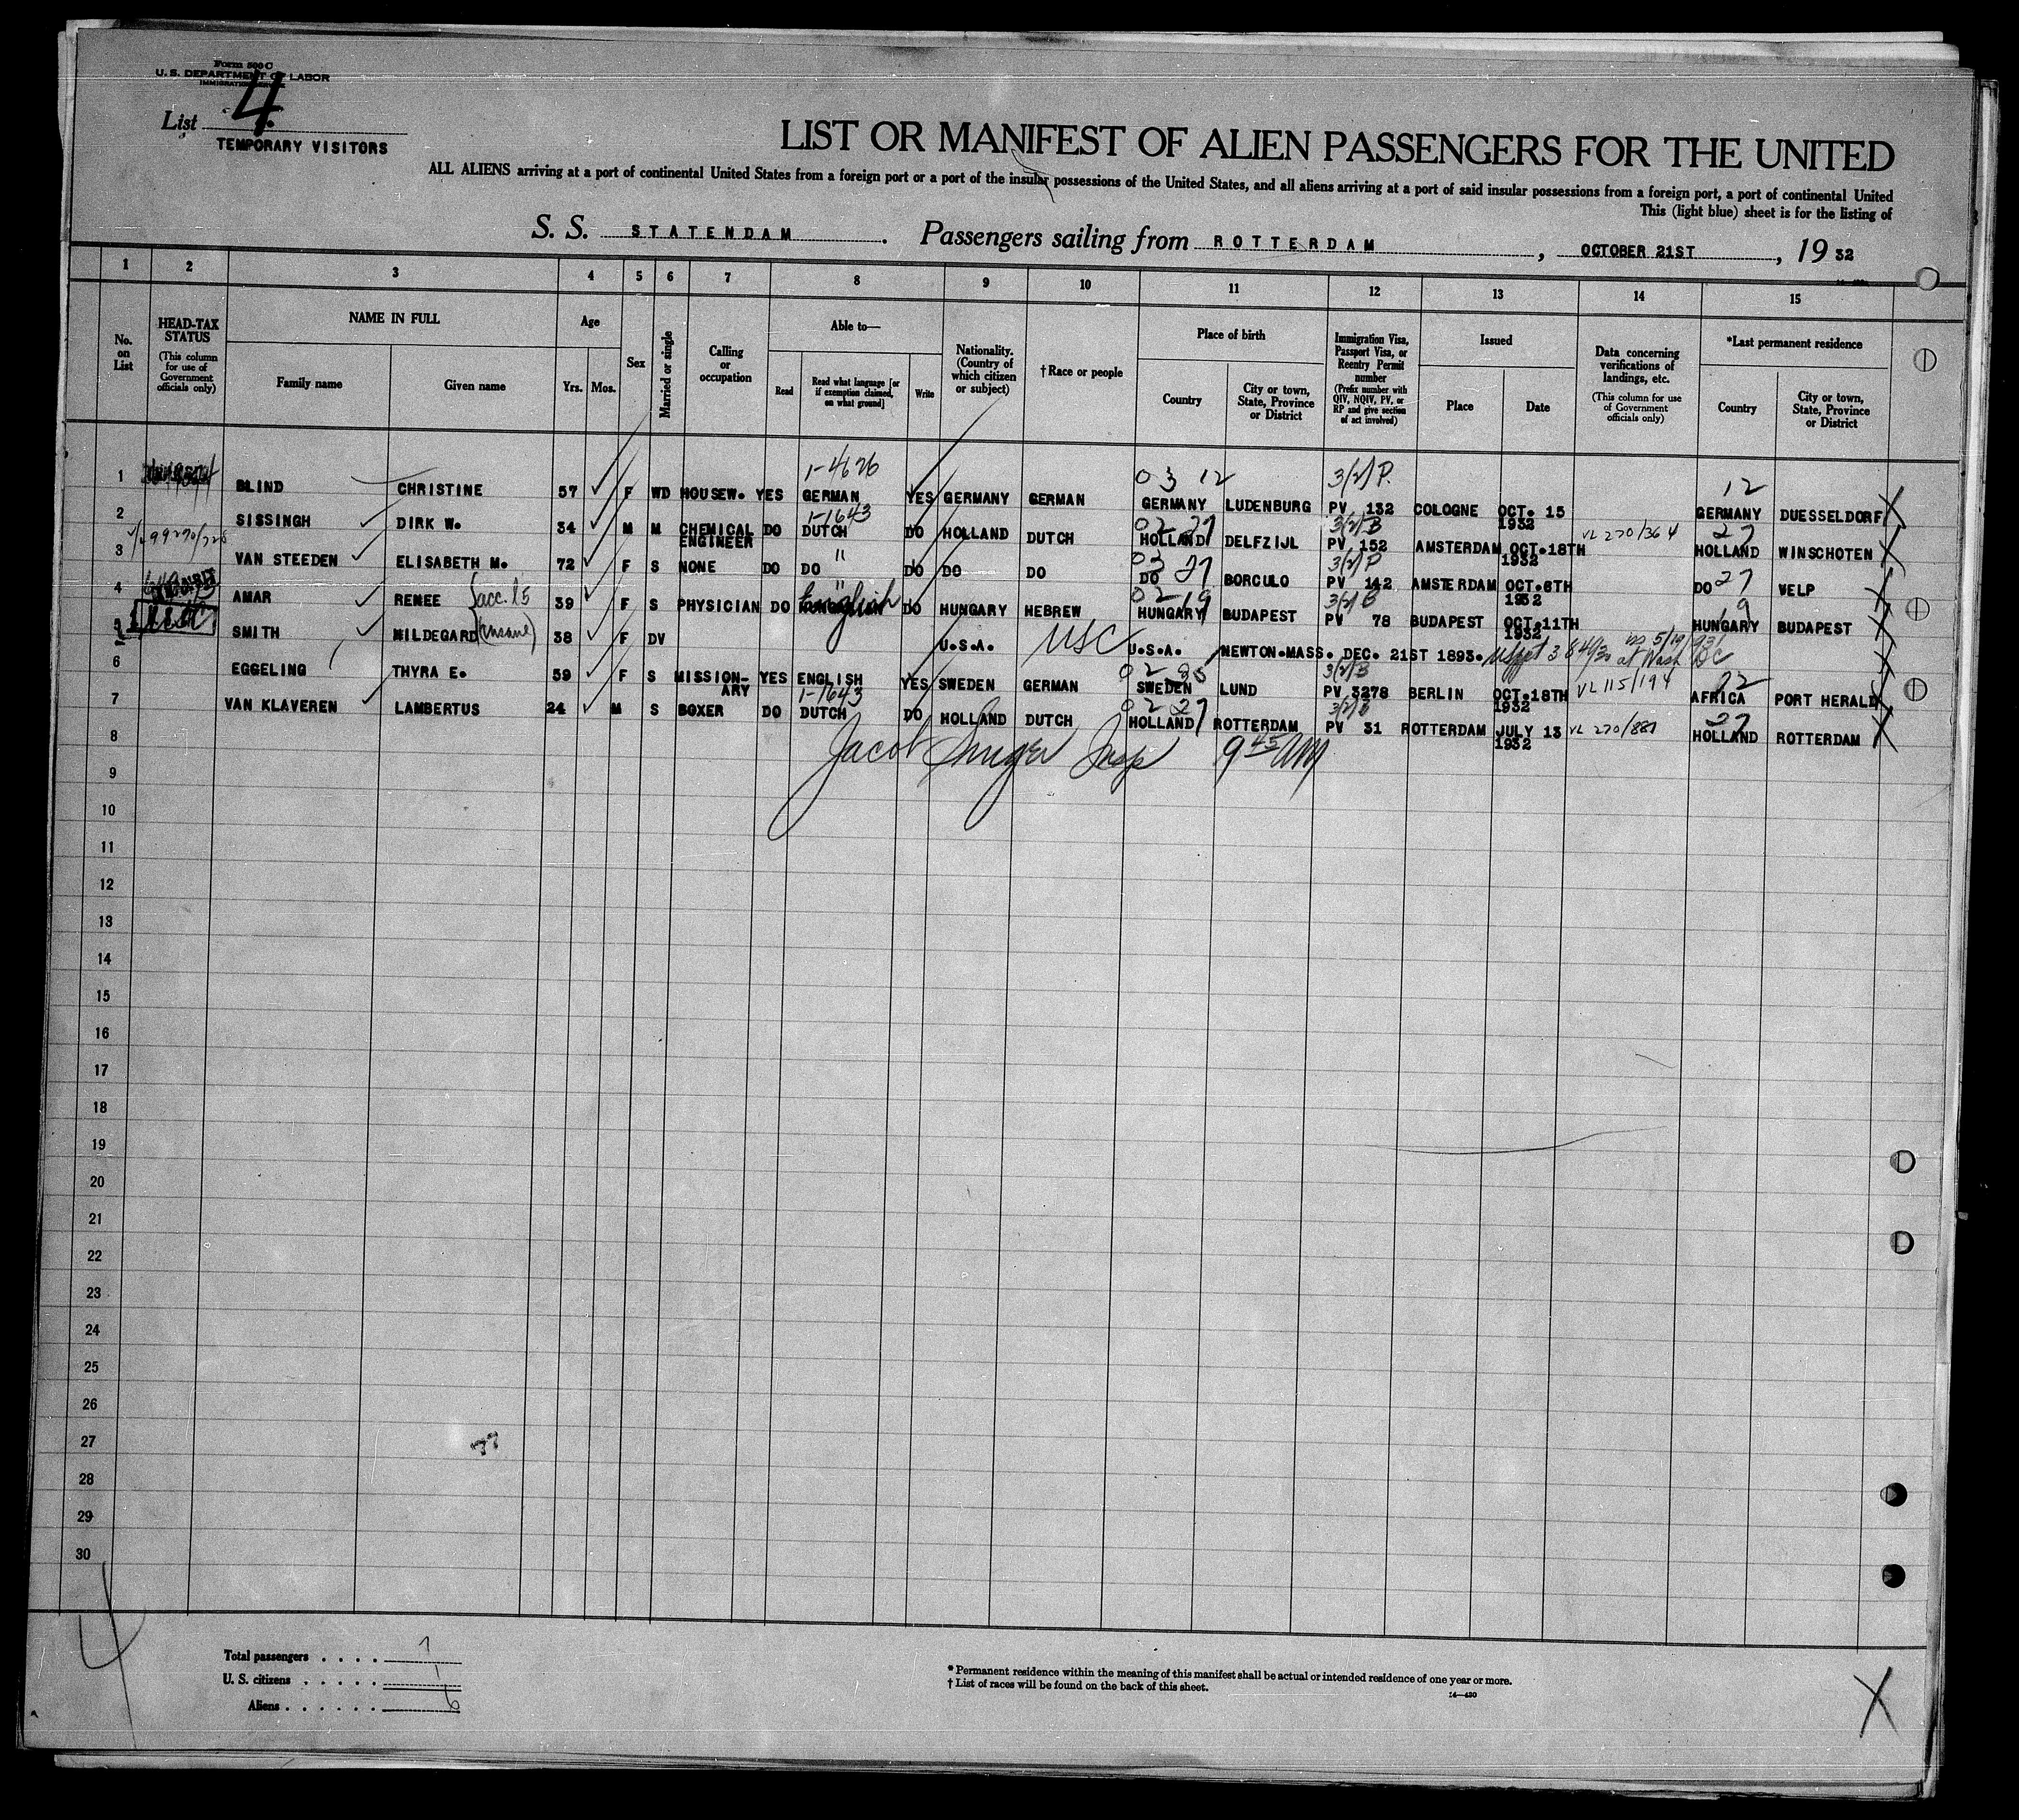 Form 500 C
U. S. DEPARTMENT OF LABOR
IMMIGRATION SERVICE
List 4
TEMPORARY VISITORS
LIST OR MANIFEST OF ALIEN PASSENGERS FOR THE UNITED
ALL ALIENS arriving at a port of continental United States from a foreign port or a port of the insular possessions of the United States, and all aliens arriving at a port of said insular possessions from a foreign port, a port of continental United
This (light blue) sheet is for the listing of
S. S. STATENDAM. Passengers sailing from ROTTERDAM, OCTOBER 21ST, 19 32
1 2 3 4 5 6 7 8 9 10 11 12 13 14 15
No. on List
HEAD-TAX STATUS (This column for use of Government officials only)
NAME IN FULL
Family name Given name
Age
Yrs. Mos.
Sex
Married or single
Calling or occupation
Able to—
Read Read what language [or if exemption claimed, on what ground] Write
Nationality. (Country of which citizen or subject)
† Race or people
Place of birth
Country City or town, State, Province or District
Immigration Visa, Passport Visa, or Reentry Permit number (Prefix number with QIV, NQIV, PV, or RP and give section of act involved)
Issued
Place Date
Data concerning verifications of landings, etc. (This column for use of Government officials only)
*Last permanent residence
Country City or town, State, Province or District
1-4626 03 12 3(2)P. 12
1 BLIND CHRISTINE 57 F WD HOUSEW. YES GERMAN YES GERMANY GERMAN GERMANY LUDENBURG PV 132 COLOGNE OCT. 15 1932 GERMANY DUESSELDORF
1-1643 02 27 3(2)B 27
2 SISSINGH DIRK W. 34 M M CHEMICAL ENGINEER DO DUTCH DO HOLLAND DUTCH HOLLAND DELFZIJL PV 152 AMSTERDAM OCT.18TH 1932 VL 270/364 HOLLAND WINSCHOTEN
" 03 27 3(2)P 27
3 VAN STEEDEN ELISABETH M. 72 F S NONE DO DO DO DO DO DO BORCULO PV 142 AMSTERDAM OCT.6TH 1932 DO VELP
" 02 19 3(2)B 19
4 AMAR RENEE {acc. 15 39 F S PHYSICIAN DO English DO HUNGARY HEBREW HUNGARY BUDAPEST PV 78 BUDAPEST OCT.11TH 1932 HUNGARY BUDAPEST
5 SMITH HILDEGARD (insane) 38 F DV U.S.A. USC U.S.A. NEWTON.MASS. DEC. 21ST 1893. at Wash DC
02 3(2)B
6 EGGELING THYRA E. 59 F S MISSION-ARY YES ENGLISH YES SWEDEN GERMAN SWEDEN LUND PV 3278 BERLIN OCT.18TH 1932 VL 115/194 AFRICA PORT HERALD
1-1643 02 27 3(2)B 27
7 VAN KLAVEREN LAMBERTUS 24 M S BOXER DO DUTCH DO HOLLAND DUTCH HOLLAND ROTTERDAM PV 31 ROTTERDAM JULY 13 1932 VL 270/881 HOLLAND ROTTERDAM
8 Jacob Singer Insp 9 45 AM
9
10
11
12
13
14
15
16
17
18
19
20
21
22
23
24
25
26
27
28
29
30
4
Total passengers . . . . 7
U. S. citizens . . . . . 1
Aliens . . . . . . 6
* Permanent residence within the meaning of this manifest shall be actual or intended residence of one year or more.
† List of races will be found on the back of this sheet.
14—430
X